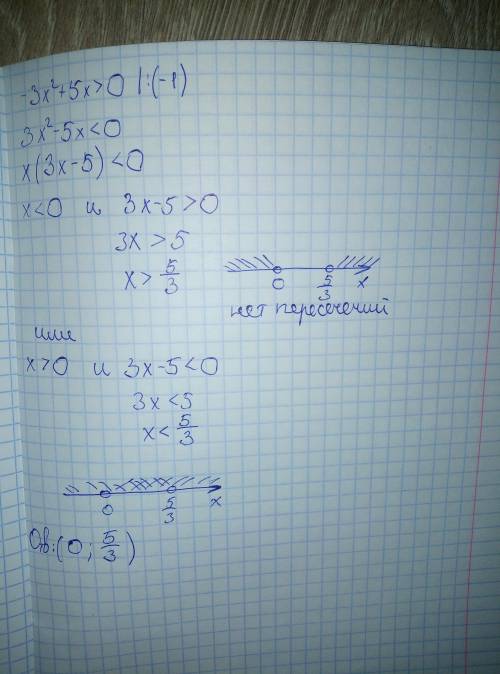 -3x²+5x>0 |:(-1)
3x²-5x<0
x(3x-5)<0
x<0 и 3x-5>0
3x>5
x>5/3
0 5/3 x
нет пересечений
или
x>0 и 3x-5<0
3x<5
x<5/3
0 5/3 x
Отв:(0; 5/3)